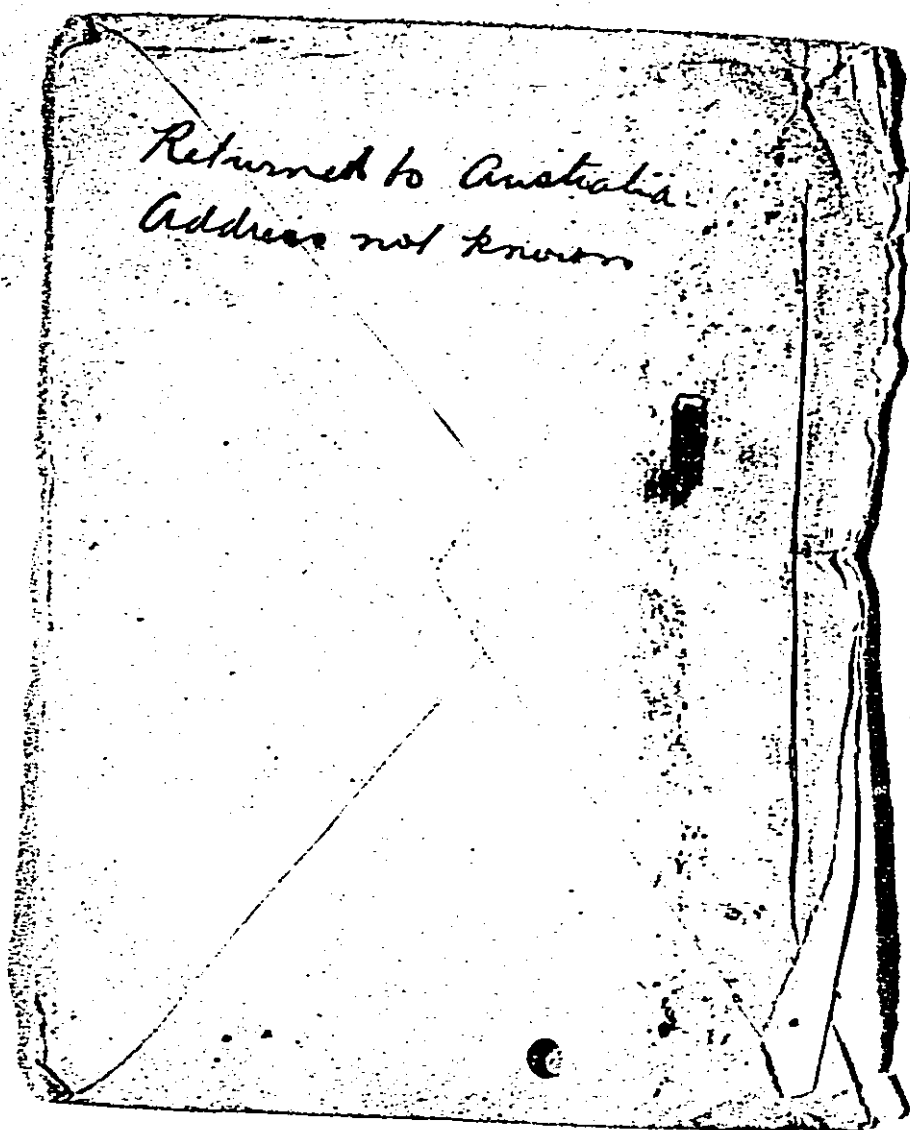 Returned to Australia.
Address not known